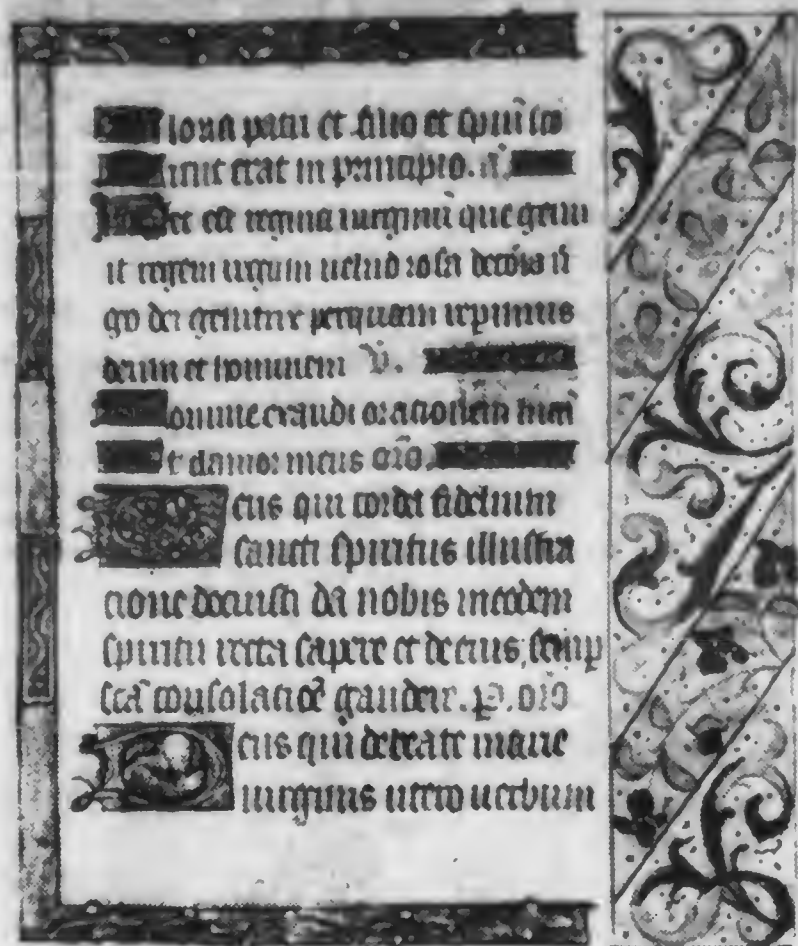 Gloria patri et filio et spiritu sco
Sicut erat in principio. a.
Hec est regina virginu que genu
it regem velud rosa decora vi
go dei genitrix per quam repimus
deum et hominem V.
Domine exaudi orationem mea
Et clamor meus oro
Deus qui corda fidelium
sancti spiritus illustra
cione docuisti da nobis ineodem
spiritu recta sapere et de eius semp
sca consolacioe gaudere. oro
Deus qui de beate marie
virginis utero verbum